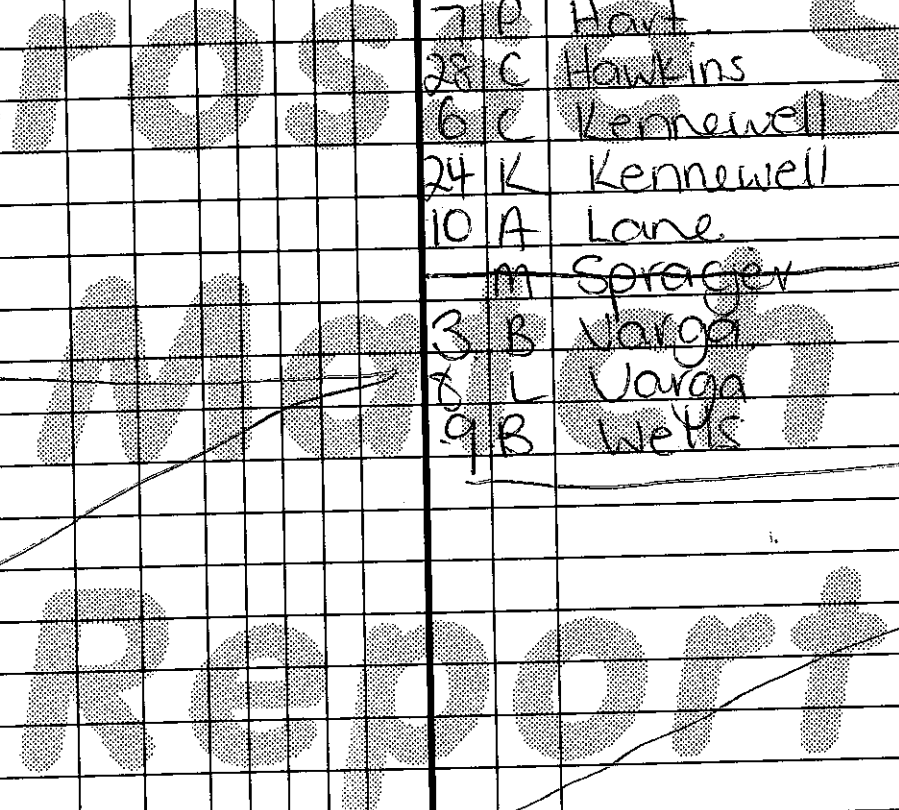 7 P Hart
28 C Hawkins
6 C Kennewell
24 K Kennewell
10 A Lane
M Sprager
3 B Varga
8 L Varga
9 B Wells
Report